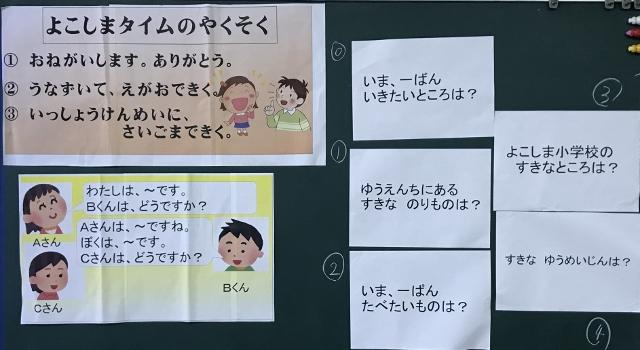 よこしまタイムのやくそく
① おねがいします。ありがとう。
② うなずいて、えがおできく。
③ いっしょうけんめいに、
さいごまできく。
わたしは、～です。
Bくんは、どうですか？
Aさんは、～ですね。
ぼくは、～です。
Cさんは、どうですか？
Aさん
Bくん
Cさん
⓪
いま、一ばん
いきたいところは？
①
ゆうえんちにある
すきな のりものは？
②
いま、一ばん
たべたいものは？
③
よこしま小学校の
すきなところは？
すきな ゆうめいじんは？
④